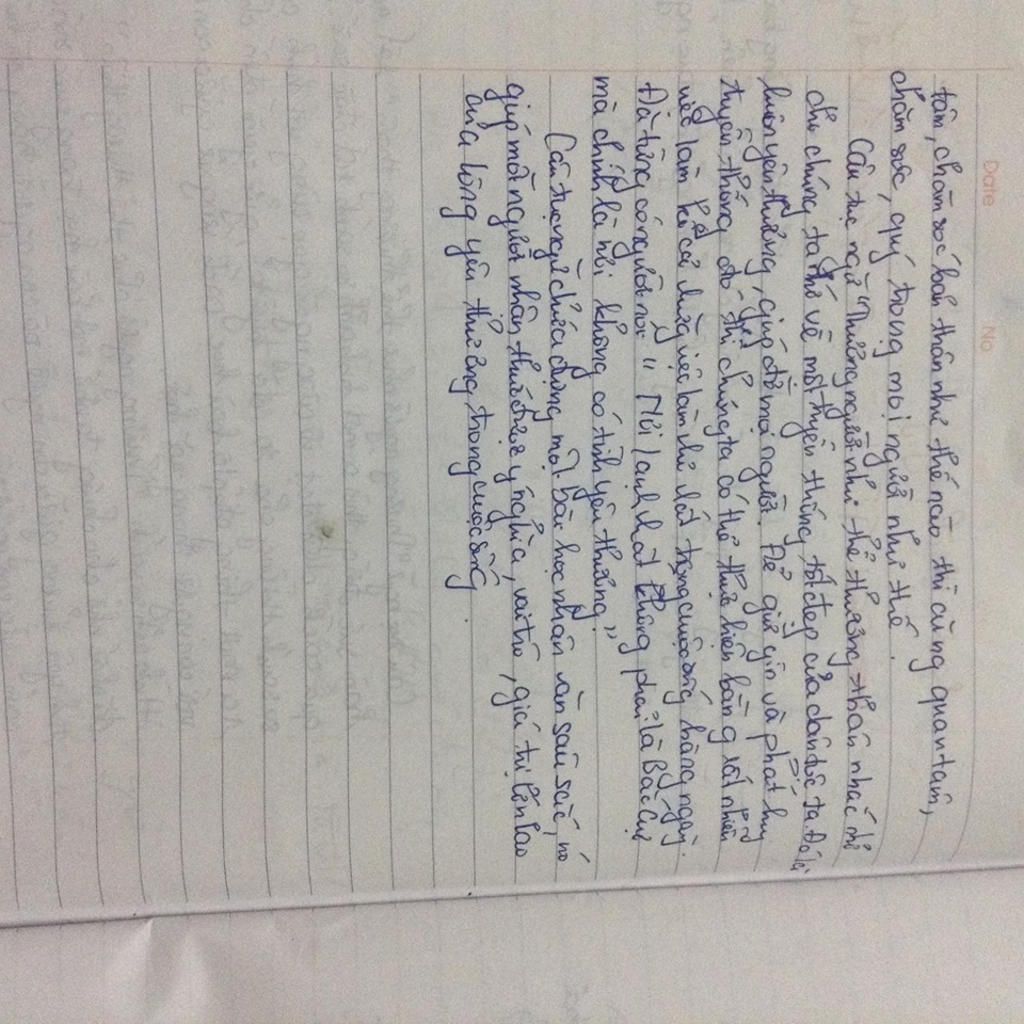 Date No
tâm, chăm sóc bản thân như thế nào thì cũng quan tâm,
chăm sóc, quý trọng mọi người như thế.
Câu tục ngữ "Thương người như thể thương thân nhắc nhở
cho chúng ta nhớ về một truyền thống tốt đẹp của dân tộc ta. Đó là
luôn yêu thương, giúp đỡ mọi người. Để giữ gìn và phát huy
truyền thống đó thì chúng ta có thể thực hiện bằng rất nhiều
việc làm kể cả những việc làm nhỏ nhất trong cuộc sống hằng ngày.
Đã từng có người nói " Nơi lạnh nhất không phải là Bắc Cực
mà chính là nơi không có tình yêu thương."
Câu tục ngữ chứa đựng một bài học nhân văn sâu sắc, nó
giúp mỗi người nhận thức được ý nghĩa, vai trò, giá trị lớn lao
của lòng yêu thương trong cuộc sống.